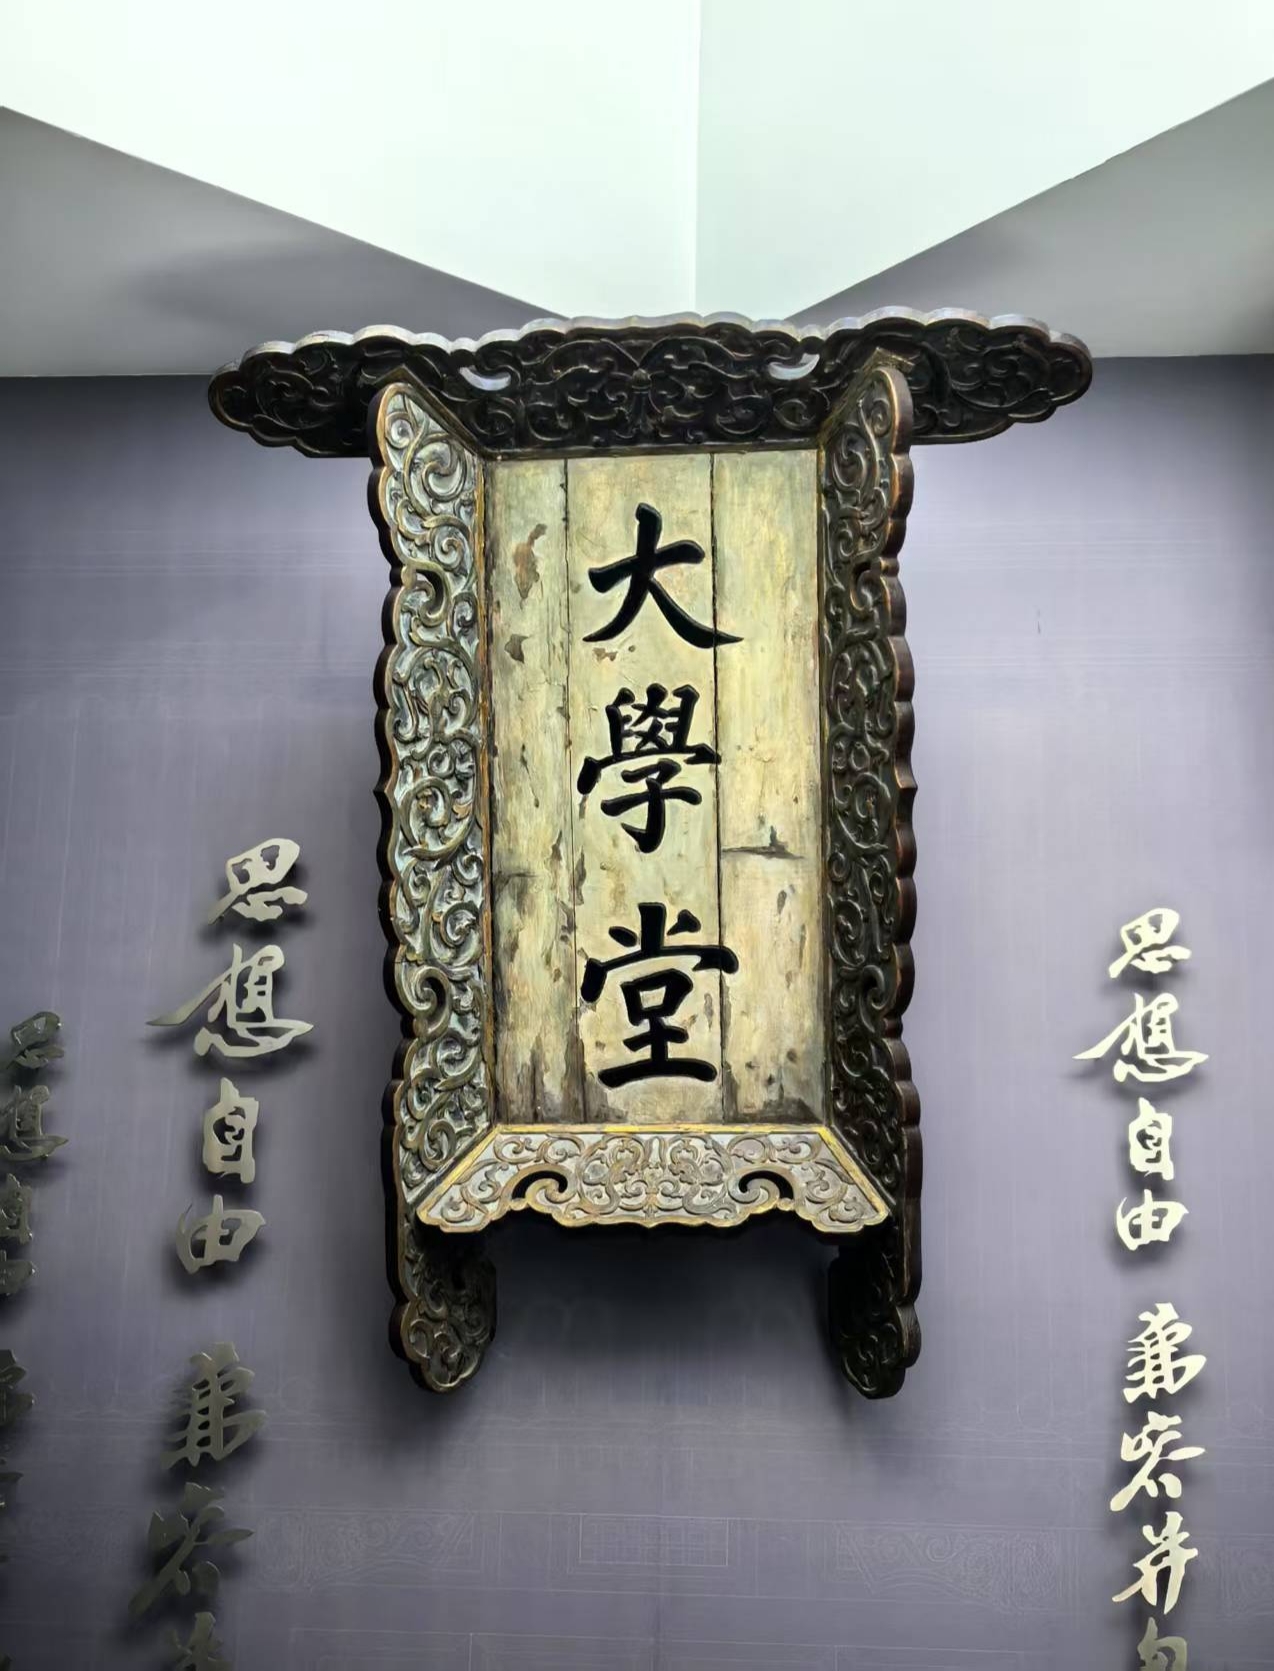 大學堂
思想自由
兼容并包
思想自由
兼容
思想自由